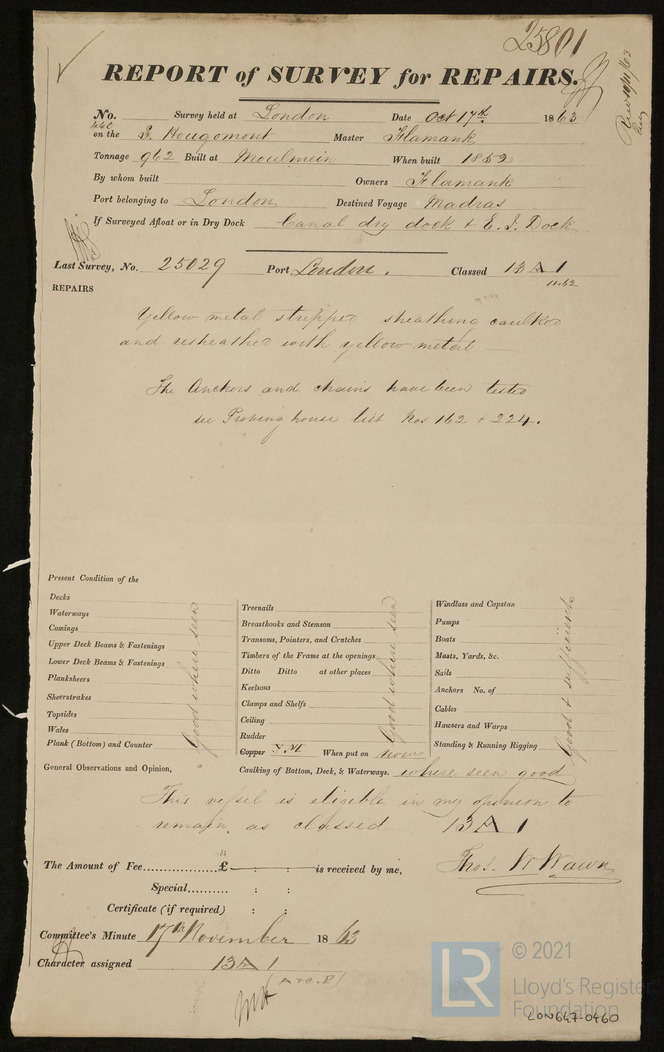 25801
REPORT of SURVEY for REPAIRS.
No. Survey held at London Date Oct 17th 1863
on the S. Hougomont Master Flamank
Tonnage 962 Built at Moulmein When built 1852
By whom built Owners Flamank
Port belonging to London Destined Voyage Madras
If Surveyed Afloat or in Dry Dock Canal dry dock & E. I. Dock
Last Survey, No. 25029 Port London. Classed 13 A 1
11.62
REPAIRS
Yellow metal stripped sheathing caulked
and resheathed with yellow metal
The Anchors and chains have been tested
see Proving house list Nos 162 & 224.
Present Condition of the
Decks
Waterways
Comings
Upper Deck Beams & Fastenings
Lower Deck Beams & Fastenings
Planksheers
Sheerstrakes
Topsides
Wales
Plank (Bottom) and Counter
Good where seen
Treenails
Breasthooks and Stemson
Transoms, Pointers, and Crutches
Timbers of the Frame at the openings
Ditto Ditto at other places
Keelsons
Clamps and Shelfs
Ceiling
Rudder
Copper Y.M. When put on now
Good where seen
Windlass and Capstan
Pumps
Boats
Masts, Yards, &c.
Sails
Anchors No. of
Cables
Hawsers and Warps
Standing & Running Rigging
Good & sufficient
General Observations and Opinion, Caulking of Bottom, Deck, & Waterways, where seen good
This vessel is eligible in my opinion to
remain as classed 13 A 1
The Amount of Fee................£ : : is received by me, Thos. W Wawn
Special.......... : :
Certificate (if required) : :
Committee's Minute 17th November 1863
Character assigned 13 A 1
© 2021
LR Lloyd's Register
Foundation
LON647-0460